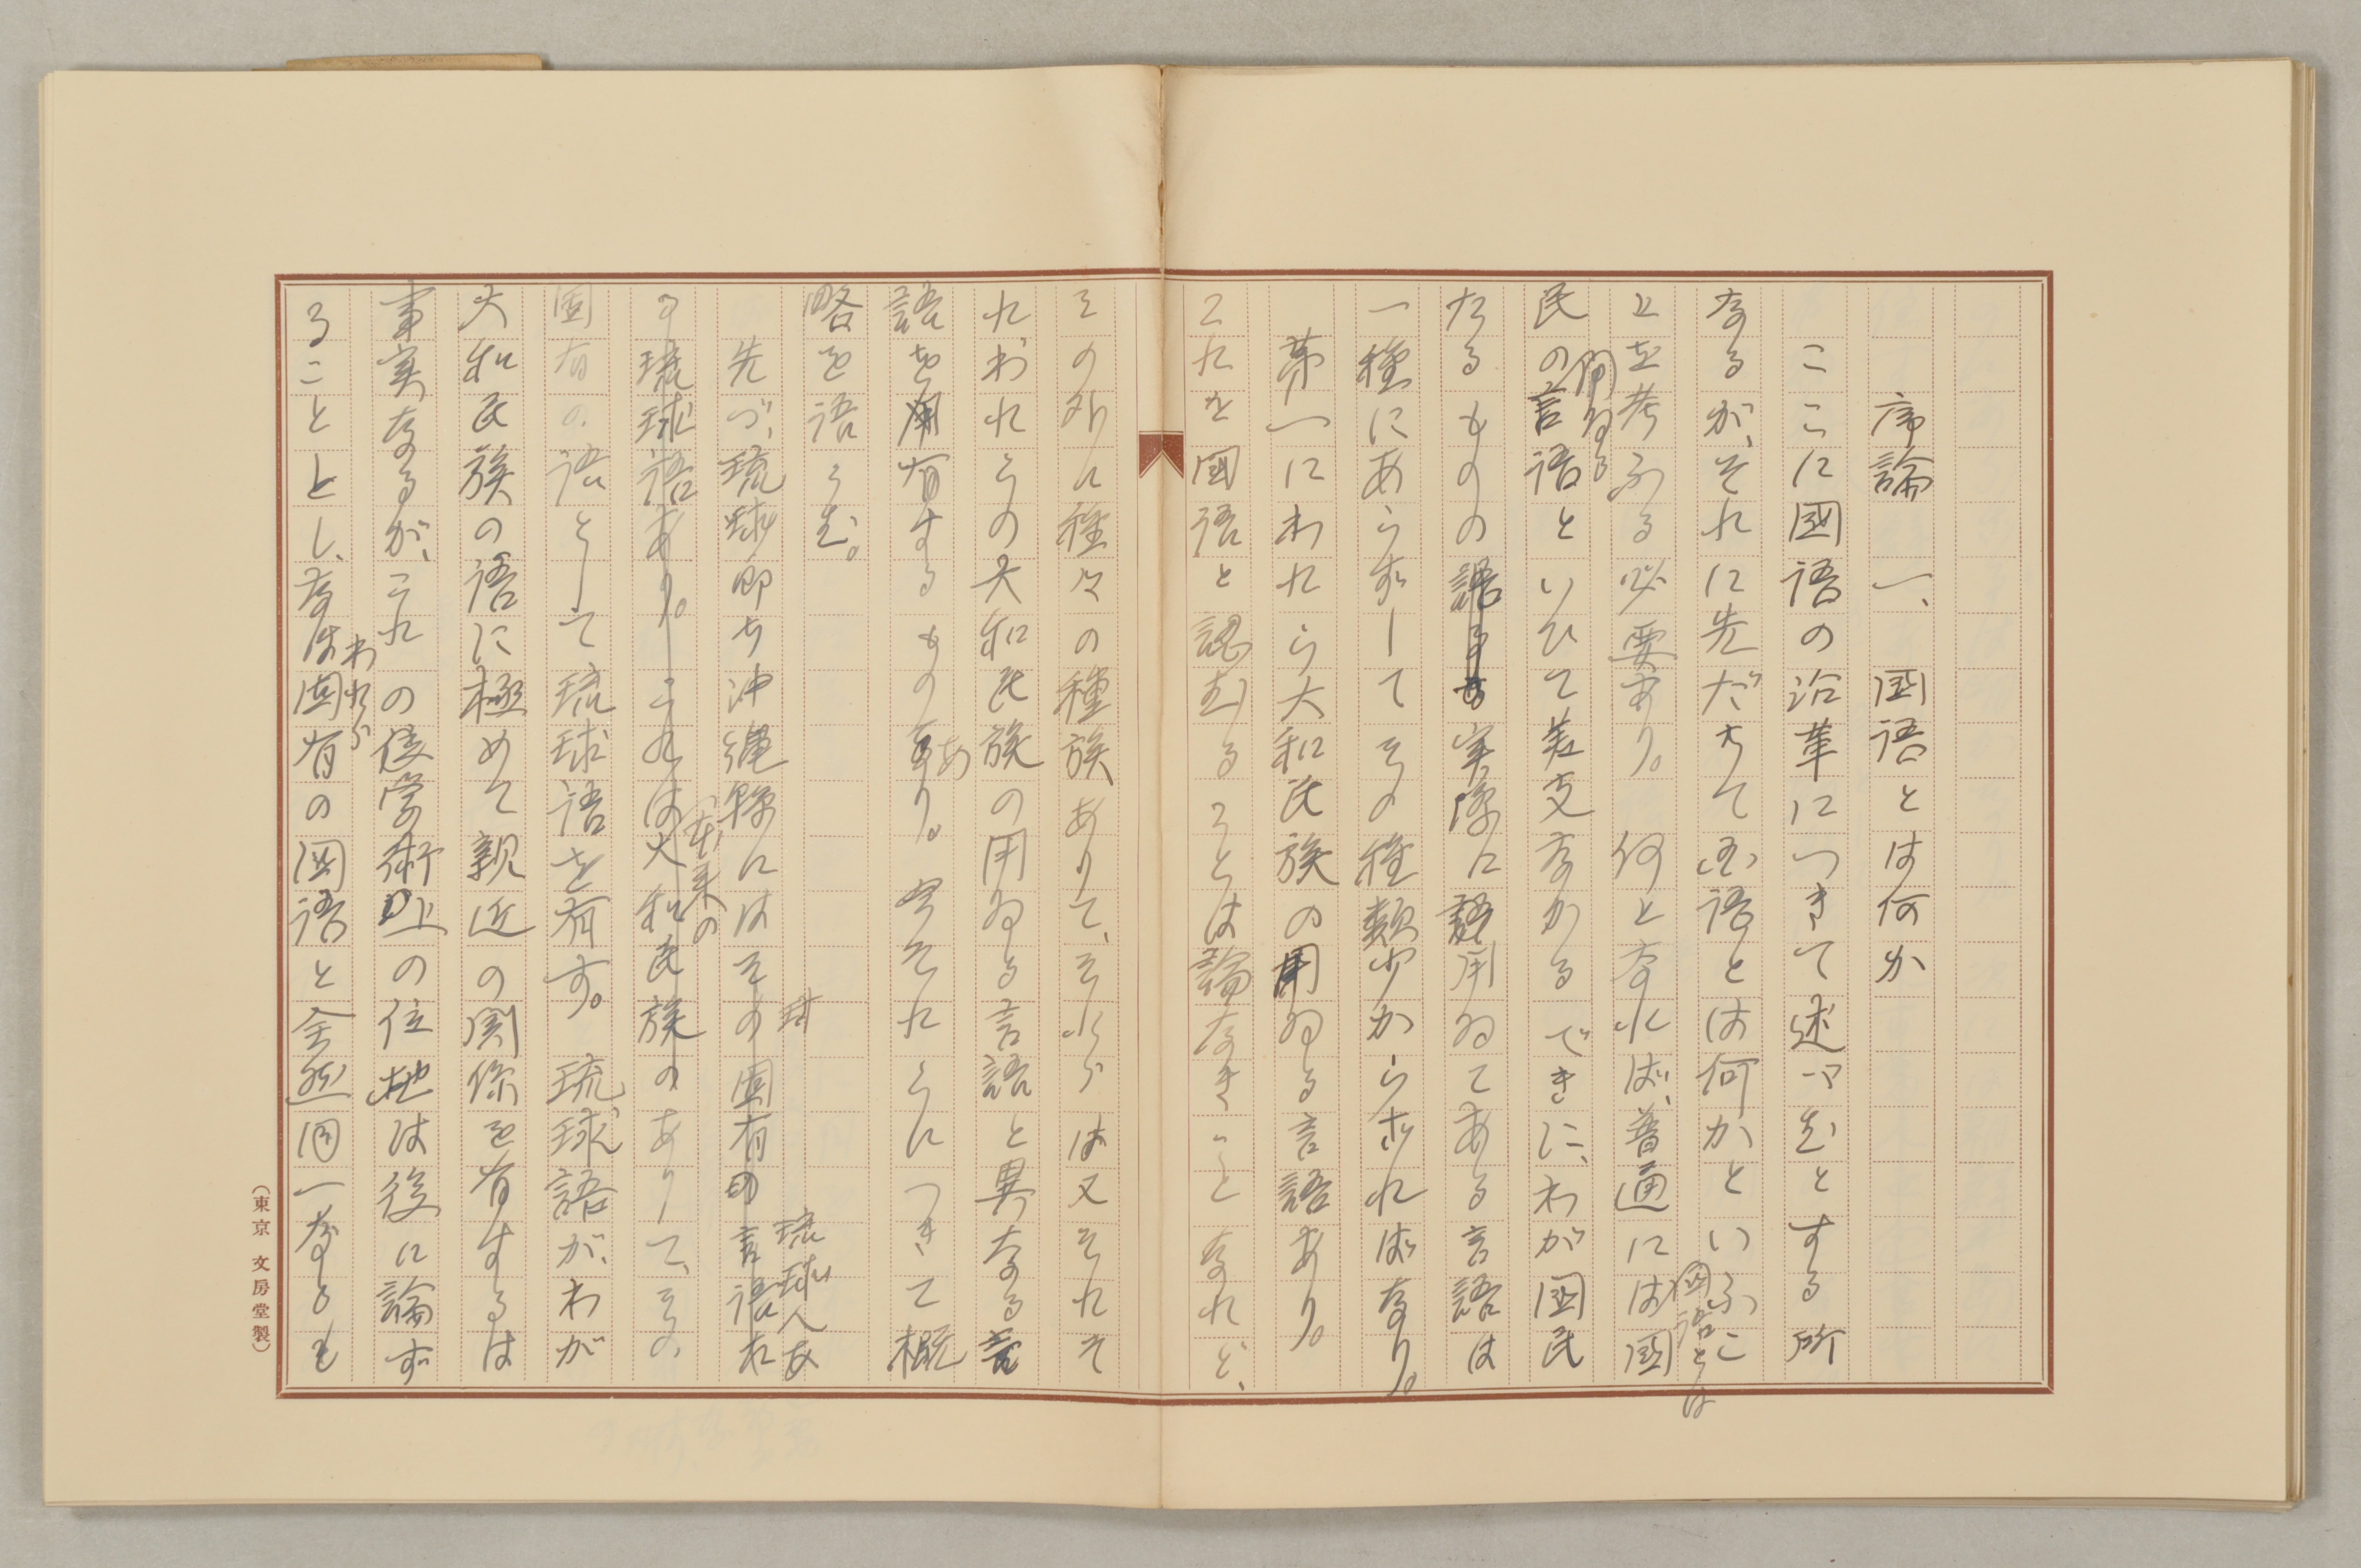 序論　一、國語とは何か
ここに國語の沿革につきて述べむとする所
なるが、それに先だちて國語とは何かといふこ
とを考ふる必要あり。何となれば、普通には國語とは國
民の用ゐる言語といひて差支なかるべきに、わが國民
たるものの実際に用ゐてある言語は
一種にあらずしてその種類少からざればなり。
第一にわれら大和民族の用ゐる言語あり。
これを國語と認むることは論なきことなれど、
その外に種々の種族ありて、それらは又それぞ
れわれらの大和民族の用ゐる言語と異なる言
語を有するものあり。今それらにつきて概
略を語らむ。
先づ、琉球即ち沖縄縣にはその固有の言語
の琉球語あり。これは本来の大和民族のありて、その
固有の語として琉球語を有す。琉球語が、わが
大和民族の語に極めて親近の関係を有するは
事実なるが、これの後学術上の位地は後に論ず
ることとし、なほわれら固有の國語と全然同一なりとも
（東京　文房堂製）